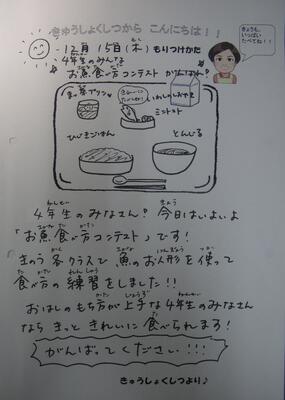 きゅうしょくしつから こんにちは！！
きょうも、
いっぱい
たべてね！！
12月 15日(木) もりつけかた
4年生のみんな
お魚食べ方コンテスト がんばれ！
まっ茶プリン
きれいに
たべてね！
いわしのしおやき
ミニトマト
ひじきごはん
とんじる
4年生のみなさん？ 今日はいよいよ
「お魚食べ方コンテスト」です！
きのう 各クラスで 魚のお人形を使って
食べ方の 練習をしました！！
おはしのもち方が上手な4年生のみなさん
なら きっと きれいに 食べられます！
がんばってください！！！
きゅうしょくしつより♪